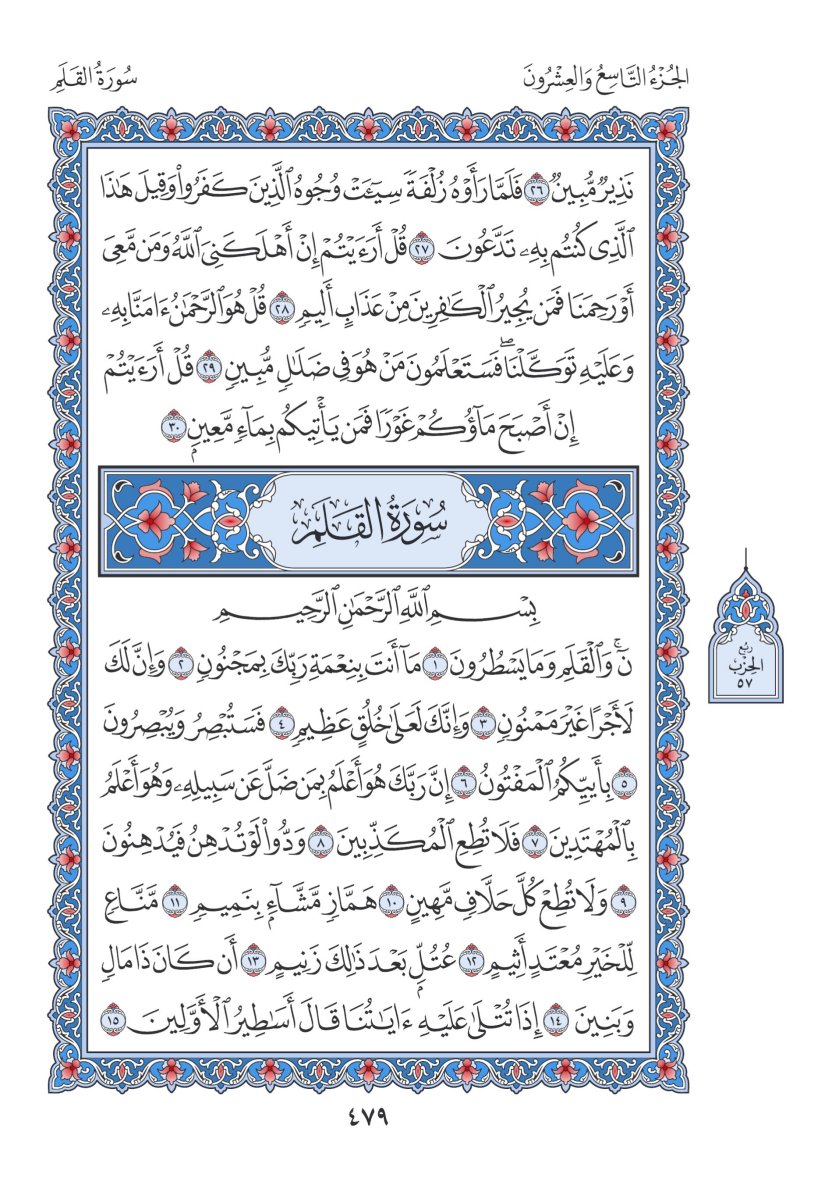 الجُزْءُ التَّاسِعُ وَالعِشْرُونَ
سُورَةُ القَلَمِ
نَذِيرٌ مُّبِينٌ ٢٦ فَلَمَّا رَأَوْهُ زُلْفَةً سِيٓـَٔتْ وُجُوهُ ٱلَّذِينَ كَفَرُوا۟ وَقِيلَ هَٰذَا
ٱلَّذِى كُنتُم بِهِۦ تَدَّعُونَ ٢٧ قُلْ أَرَءَيْتُمْ إِنْ أَهْلَكَنِىَ ٱللَّهُ وَمَن مَّعِىَ
أَوْ رَحِمَنَا فَمَن يُجِيرُ ٱلْكَٰفِرِينَ مِنْ عَذَابٍ أَلِيمٍ ٢٨ قُلْ هُوَ ٱلرَّحْمَٰنُ ءَامَنَّا بِهِۦ
وَعَلَيْهِ تَوَكَّلْنَا ۖ فَسَتَعْلَمُونَ مَنْ هُوَ فِى ضَلَٰلٍ مُّبِينٍ ٢٩ قُلْ أَرَءَيْتُمْ
إِنْ أَصْبَحَ مَآؤُكُمْ غَوْرًا فَمَن يَأْتِيكُم بِمَآءٍ مَّعِينٍۭ ٣٠
سُورَةُ القَلَمِ
بِسْمِ ٱللَّهِ ٱلرَّحْمَٰنِ ٱلرَّحِيمِ
نٓ ۚ وَٱلْقَلَمِ وَمَا يَسْطُرُونَ ١ مَآ أَنتَ بِنِعْمَةِ رَبِّكَ بِمَجْنُونٍ ٢ وَإِنَّ لَكَ
لَأَجْرًا غَيْرَ مَمْنُونٍ ٣ وَإِنَّكَ لَعَلَىٰ خُلُقٍ عَظِيمٍ ٤ فَسَتُبْصِرُ وَيُبْصِرُونَ
٥ بِأَييِّكُمُ ٱلْمَفْتُونُ ٦ إِنَّ رَبَّكَ هُوَ أَعْلَمُ بِمَن ضَلَّ عَن سَبِيلِهِۦ وَهُوَ أَعْلَمُ
بِٱلْمُهْتَدِينَ ٧ فَلَا تُطِعِ ٱلْمُكَذِّبِينَ ٨ وَدُّوا۟ لَوْ تُدْهِنُ فَيُدْهِنُونَ
٩ وَلَا تُطِعْ كُلَّ حَلَّافٍ مَّهِينٍ ١٠ هَمَّازٍ مَّشَّآءٍۭ بِنَمِيمٍ ١١ مَّنَّاعٍ
لِّلْخَيْرِ مُعْتَدٍ أَثِيمٍ ١٢ عُتُلٍّۭ بَعْدَ ذَٰلِكَ زَنِيمٍ ١٣ أَن كَانَ ذَا مَالٍ
وَبَنِينَ ١٤ إِذَا تُتْلَىٰ عَلَيْهِ ءَايَٰتُنَا قَالَ أَسَٰطِيرُ ٱلْأَوَّلِينَ ١٥
ربع
الحِزْب
٥٧
٤٧٩